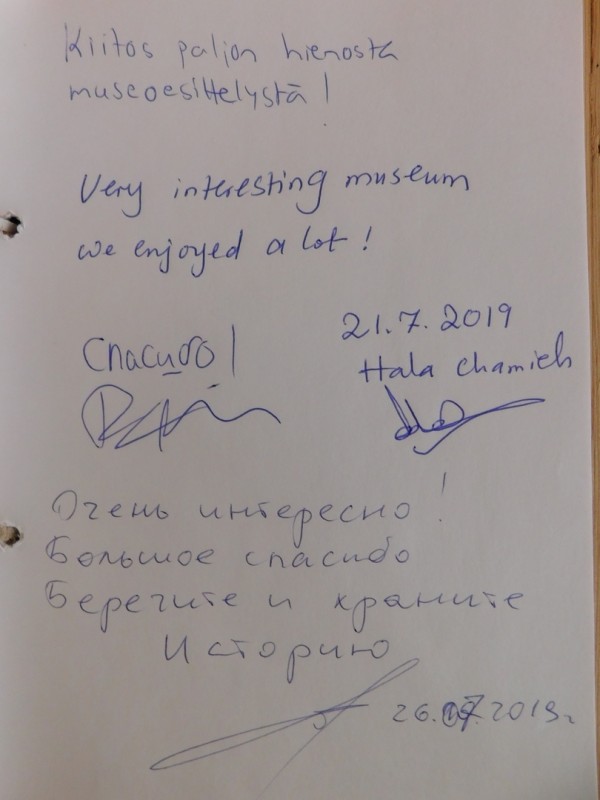 Kiitos paljon hienosta
museoesittelystä!
Very interesting museum
we enjoyed a lot!
21.7.2019
Спасибо!
Hala Chamieh
Очень интересно!
Большое спасибо
Берегите и храните
Историю
26.07.2019г